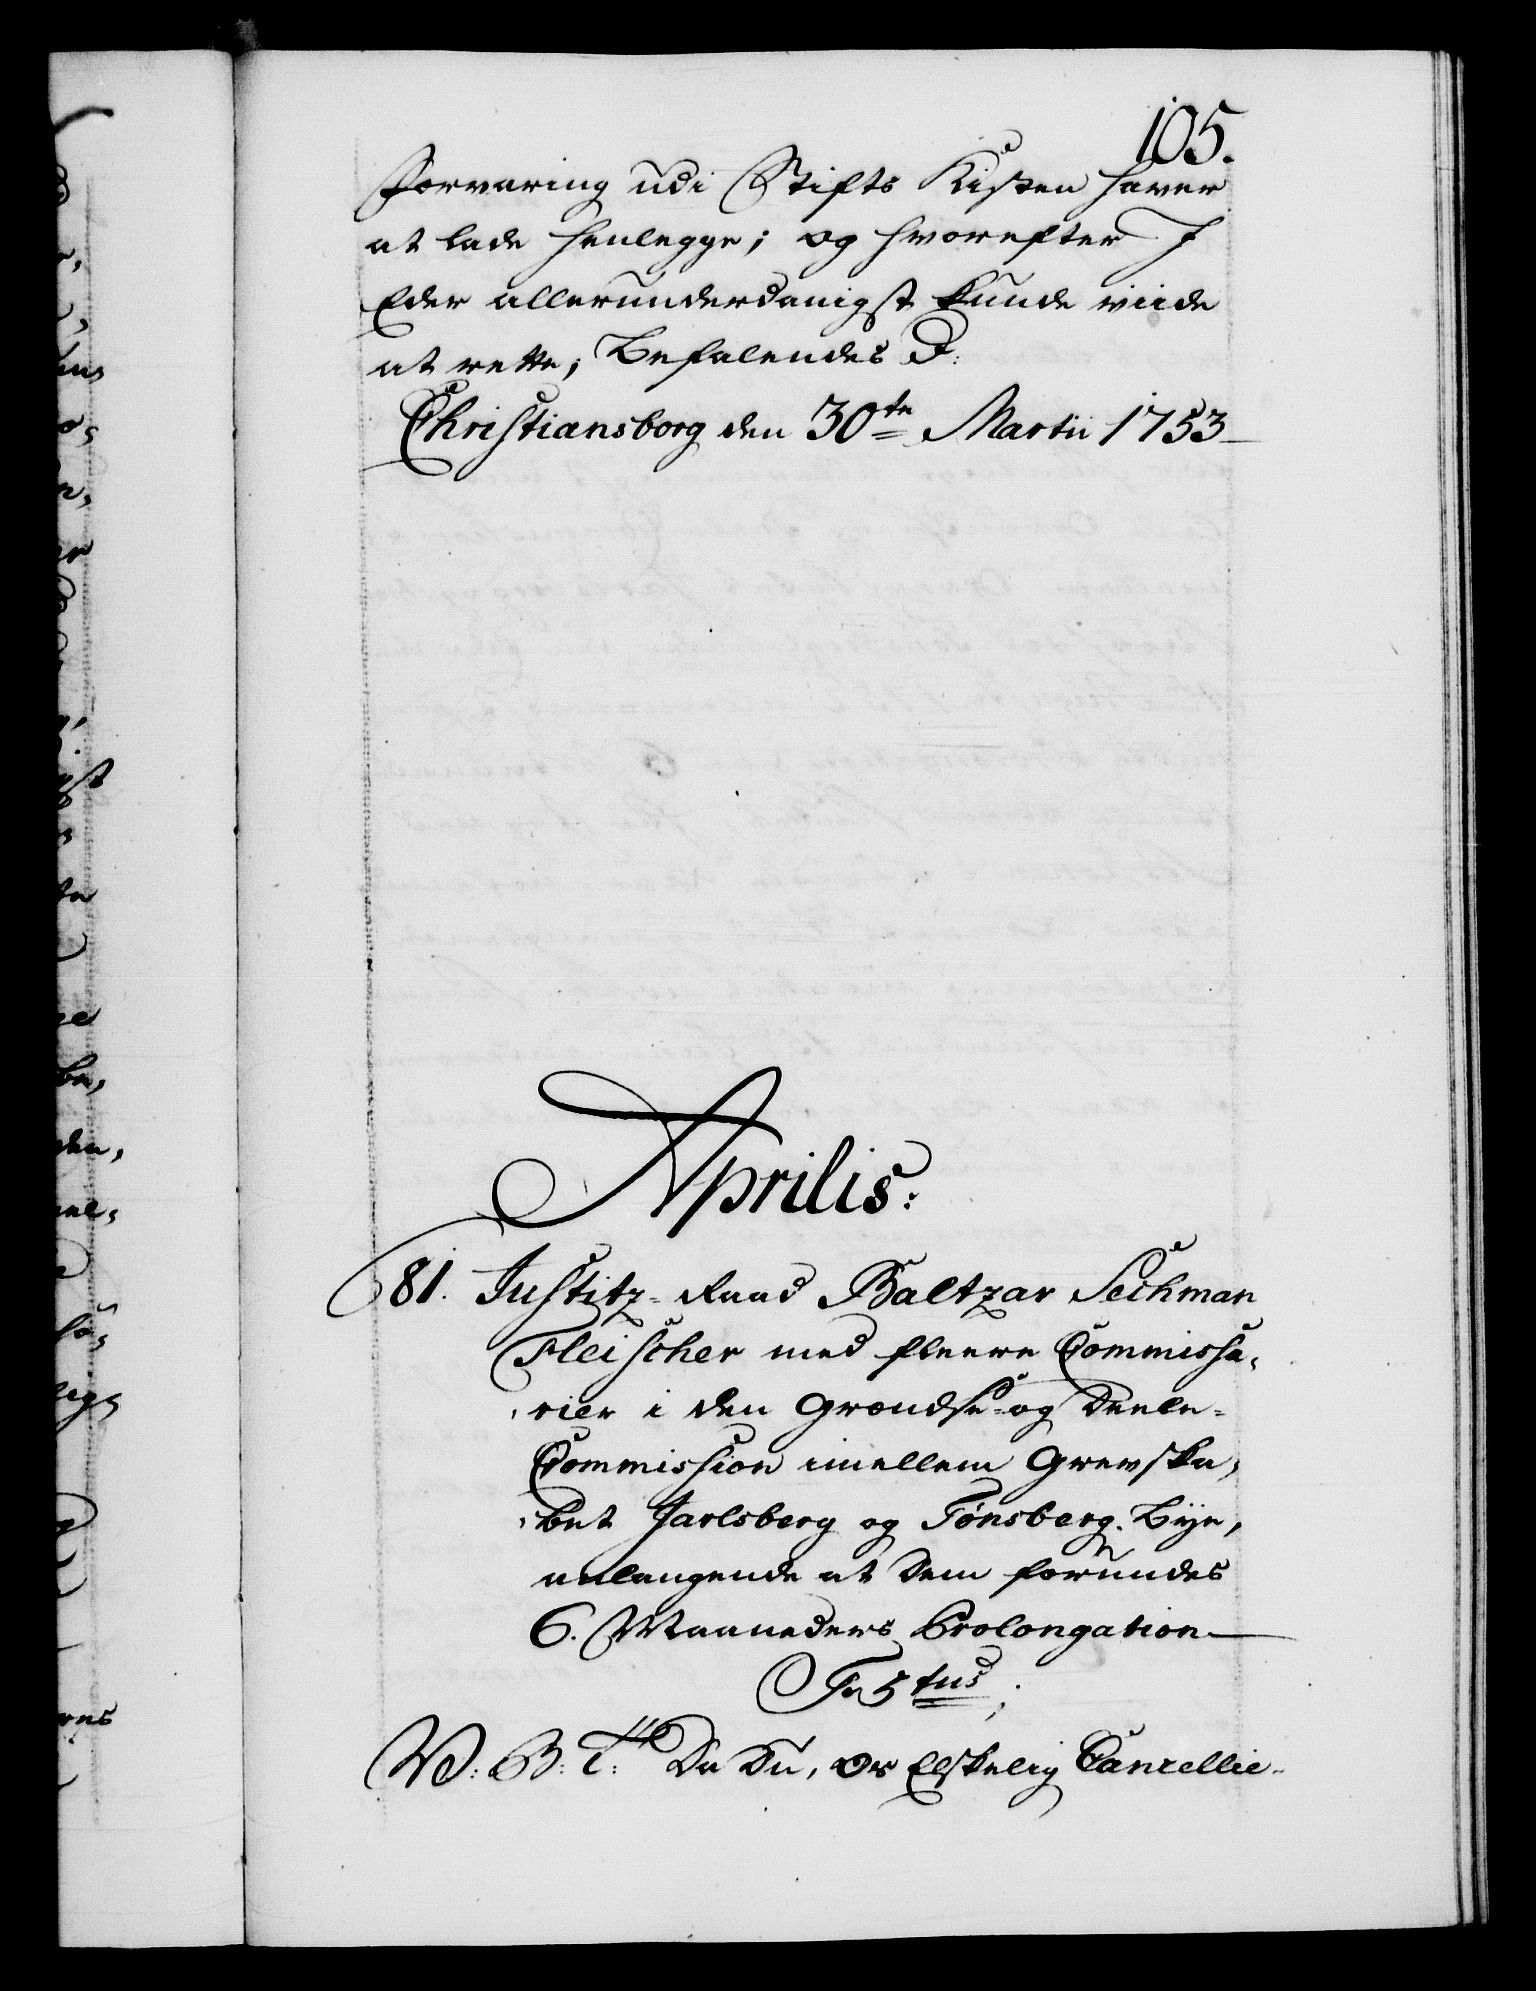 105.
Forvaring udi Stifts Kisten haver
at lade henlegge; og hvorefter I
Eder allerunderdanigst kunde viide
at rette; Befalendes D:
Christiansborg den 30te Martii 1753
Aprilis:
81. Justitz-Raad Baltzar Sechman
Fleischer med fleere Commissa,
rier i den Grændse- og Deele-
Commission imellem Grevska,
bet Jarlsberg og Tønsberg. Bye,
anlangende at dem forundes
6. Maaneders Prolongation
Fr 5tus;
W: B: T: Da Du, Os Elskelig Cancellie-